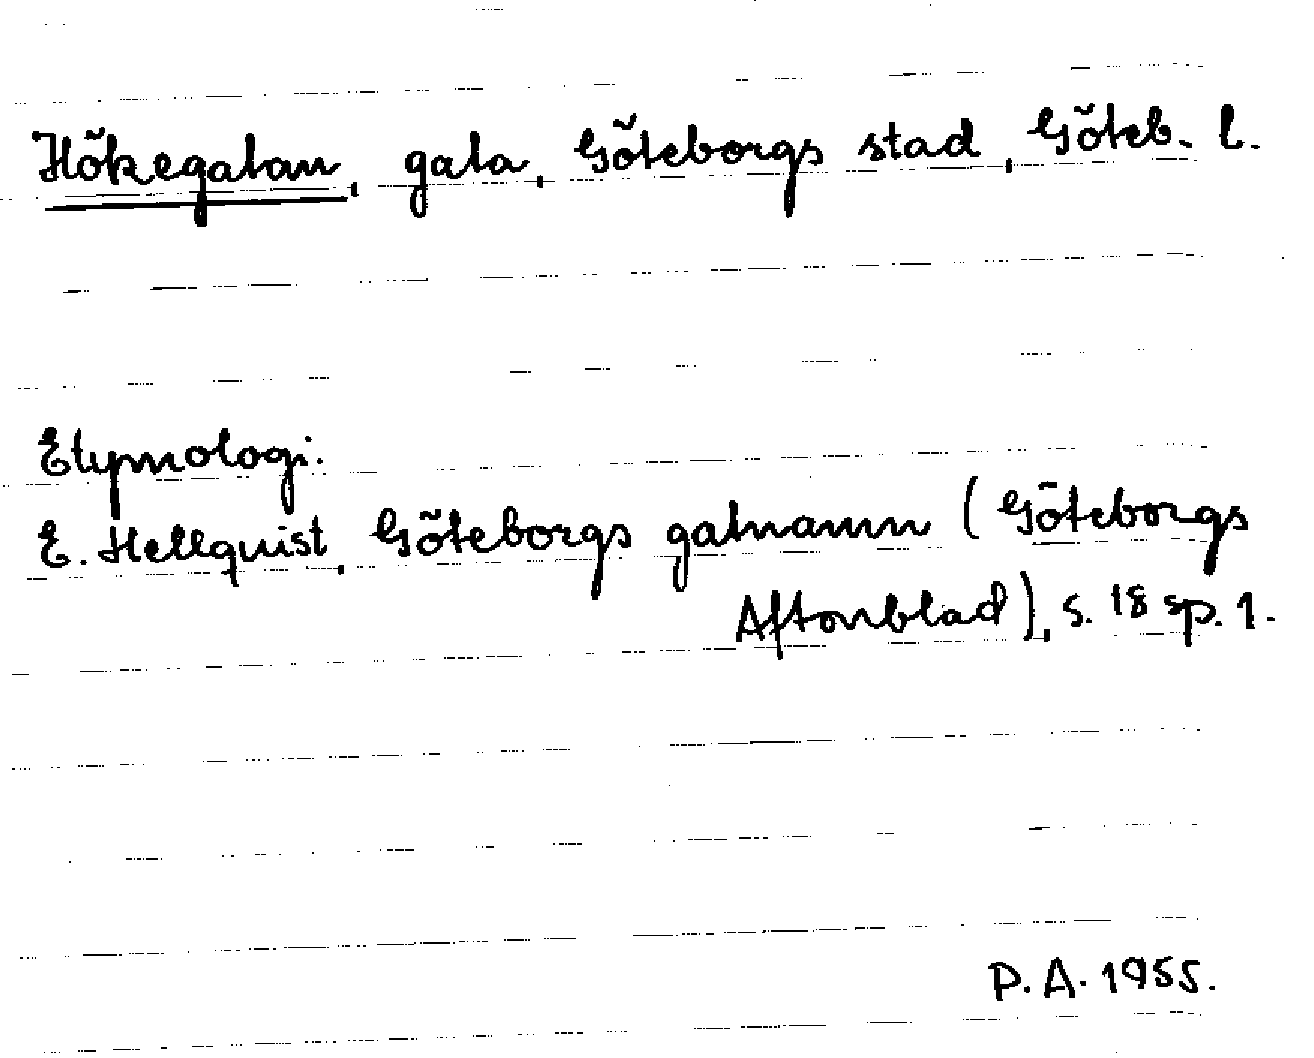 Hökegatan, gata, Göteborgs stad, Göteb. l.
Etymologi:
E. Hellquist, Göteborgs gatnamn (Göteborgs
Aftonblad), s. 18 sp. 1.
P. A. 1955.